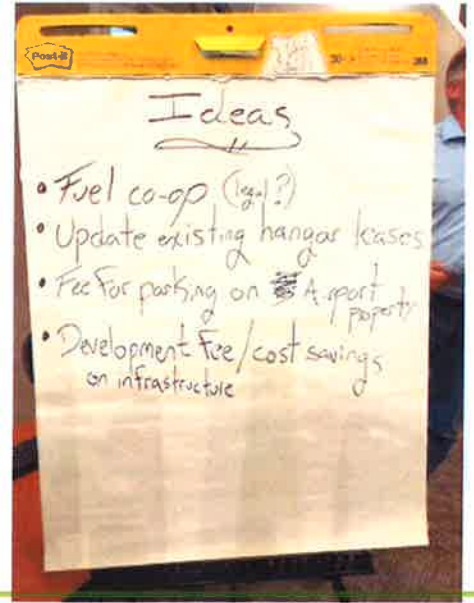 Post-it
Ideas
• Fuel co-op (legal?)
• Update existing hangar leases
• Fee for parking on Airport
property
• Development Fee/cost savings
on infrastructure